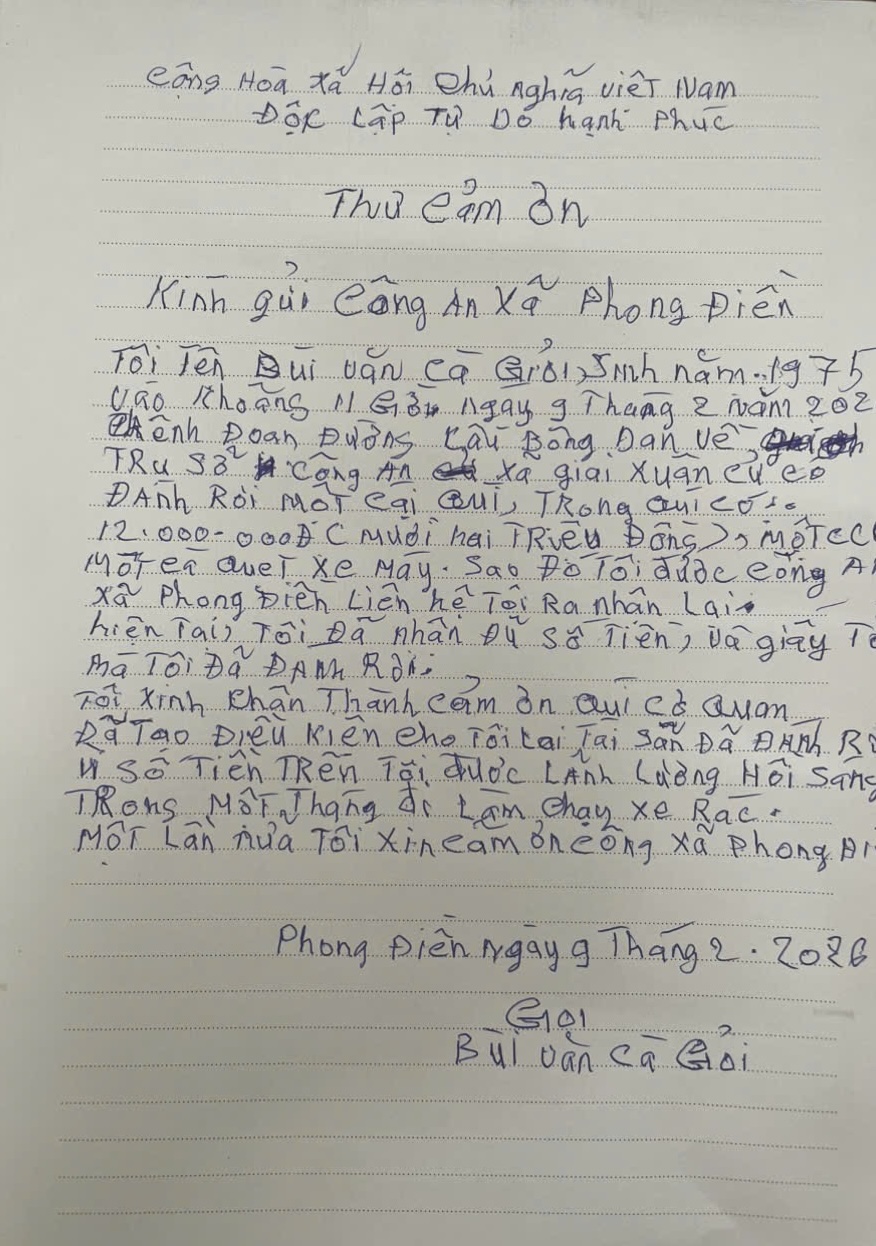 Cộng Hòa Xã Hội Chủ Nghĩa Việt Nam
Độc Lập Tự Do Hạnh Phúc
Thư Cảm Ơn
Kính gửi Công An Xã Phong Điền
Tôi Tên Bùi Văn Cà Giỏi, Sinh năm 1975
Vào Khoảng 11 Giờ ngày 9 Tháng 2 năm 202
Trênh Đoạn Đường Cầu Bông Dan Về
TRụ Sở Công An xã giai Xuân cũ có
ĐÁnh Rơi một cái quí, TRong quí có:
12.000.000Đ (Mười hai TRiệu Đồng), một CC
Một cà quet Xe Máy. Sao Đó Tôi được công A
xã Phong Điền Liên hệ Tôi Ra nhận Lại.
hiện Tại, Tôi Đã nhận Đủ số Tiền, và giấy T
mà Tôi Đã ĐÁnh Rơi.
Tôi Xinh chân Thành cảm ơn quí cơ quan
Đã Tạo Điều Kiện cho Tôi Lại Tài Sản Đã ĐÁnh R
vì số Tiền TRên Tôi được LÃnh Lương Hồi Sáng
TRong Một Tháng đi Làm chạy xe Rác.
Một Lần nữa Tôi Xin cảm ơn công xã Phong Đi
Phong Điền Ngày 9 Tháng 2. 2026
Giỏi
Bùi Văn Cà Giỏi